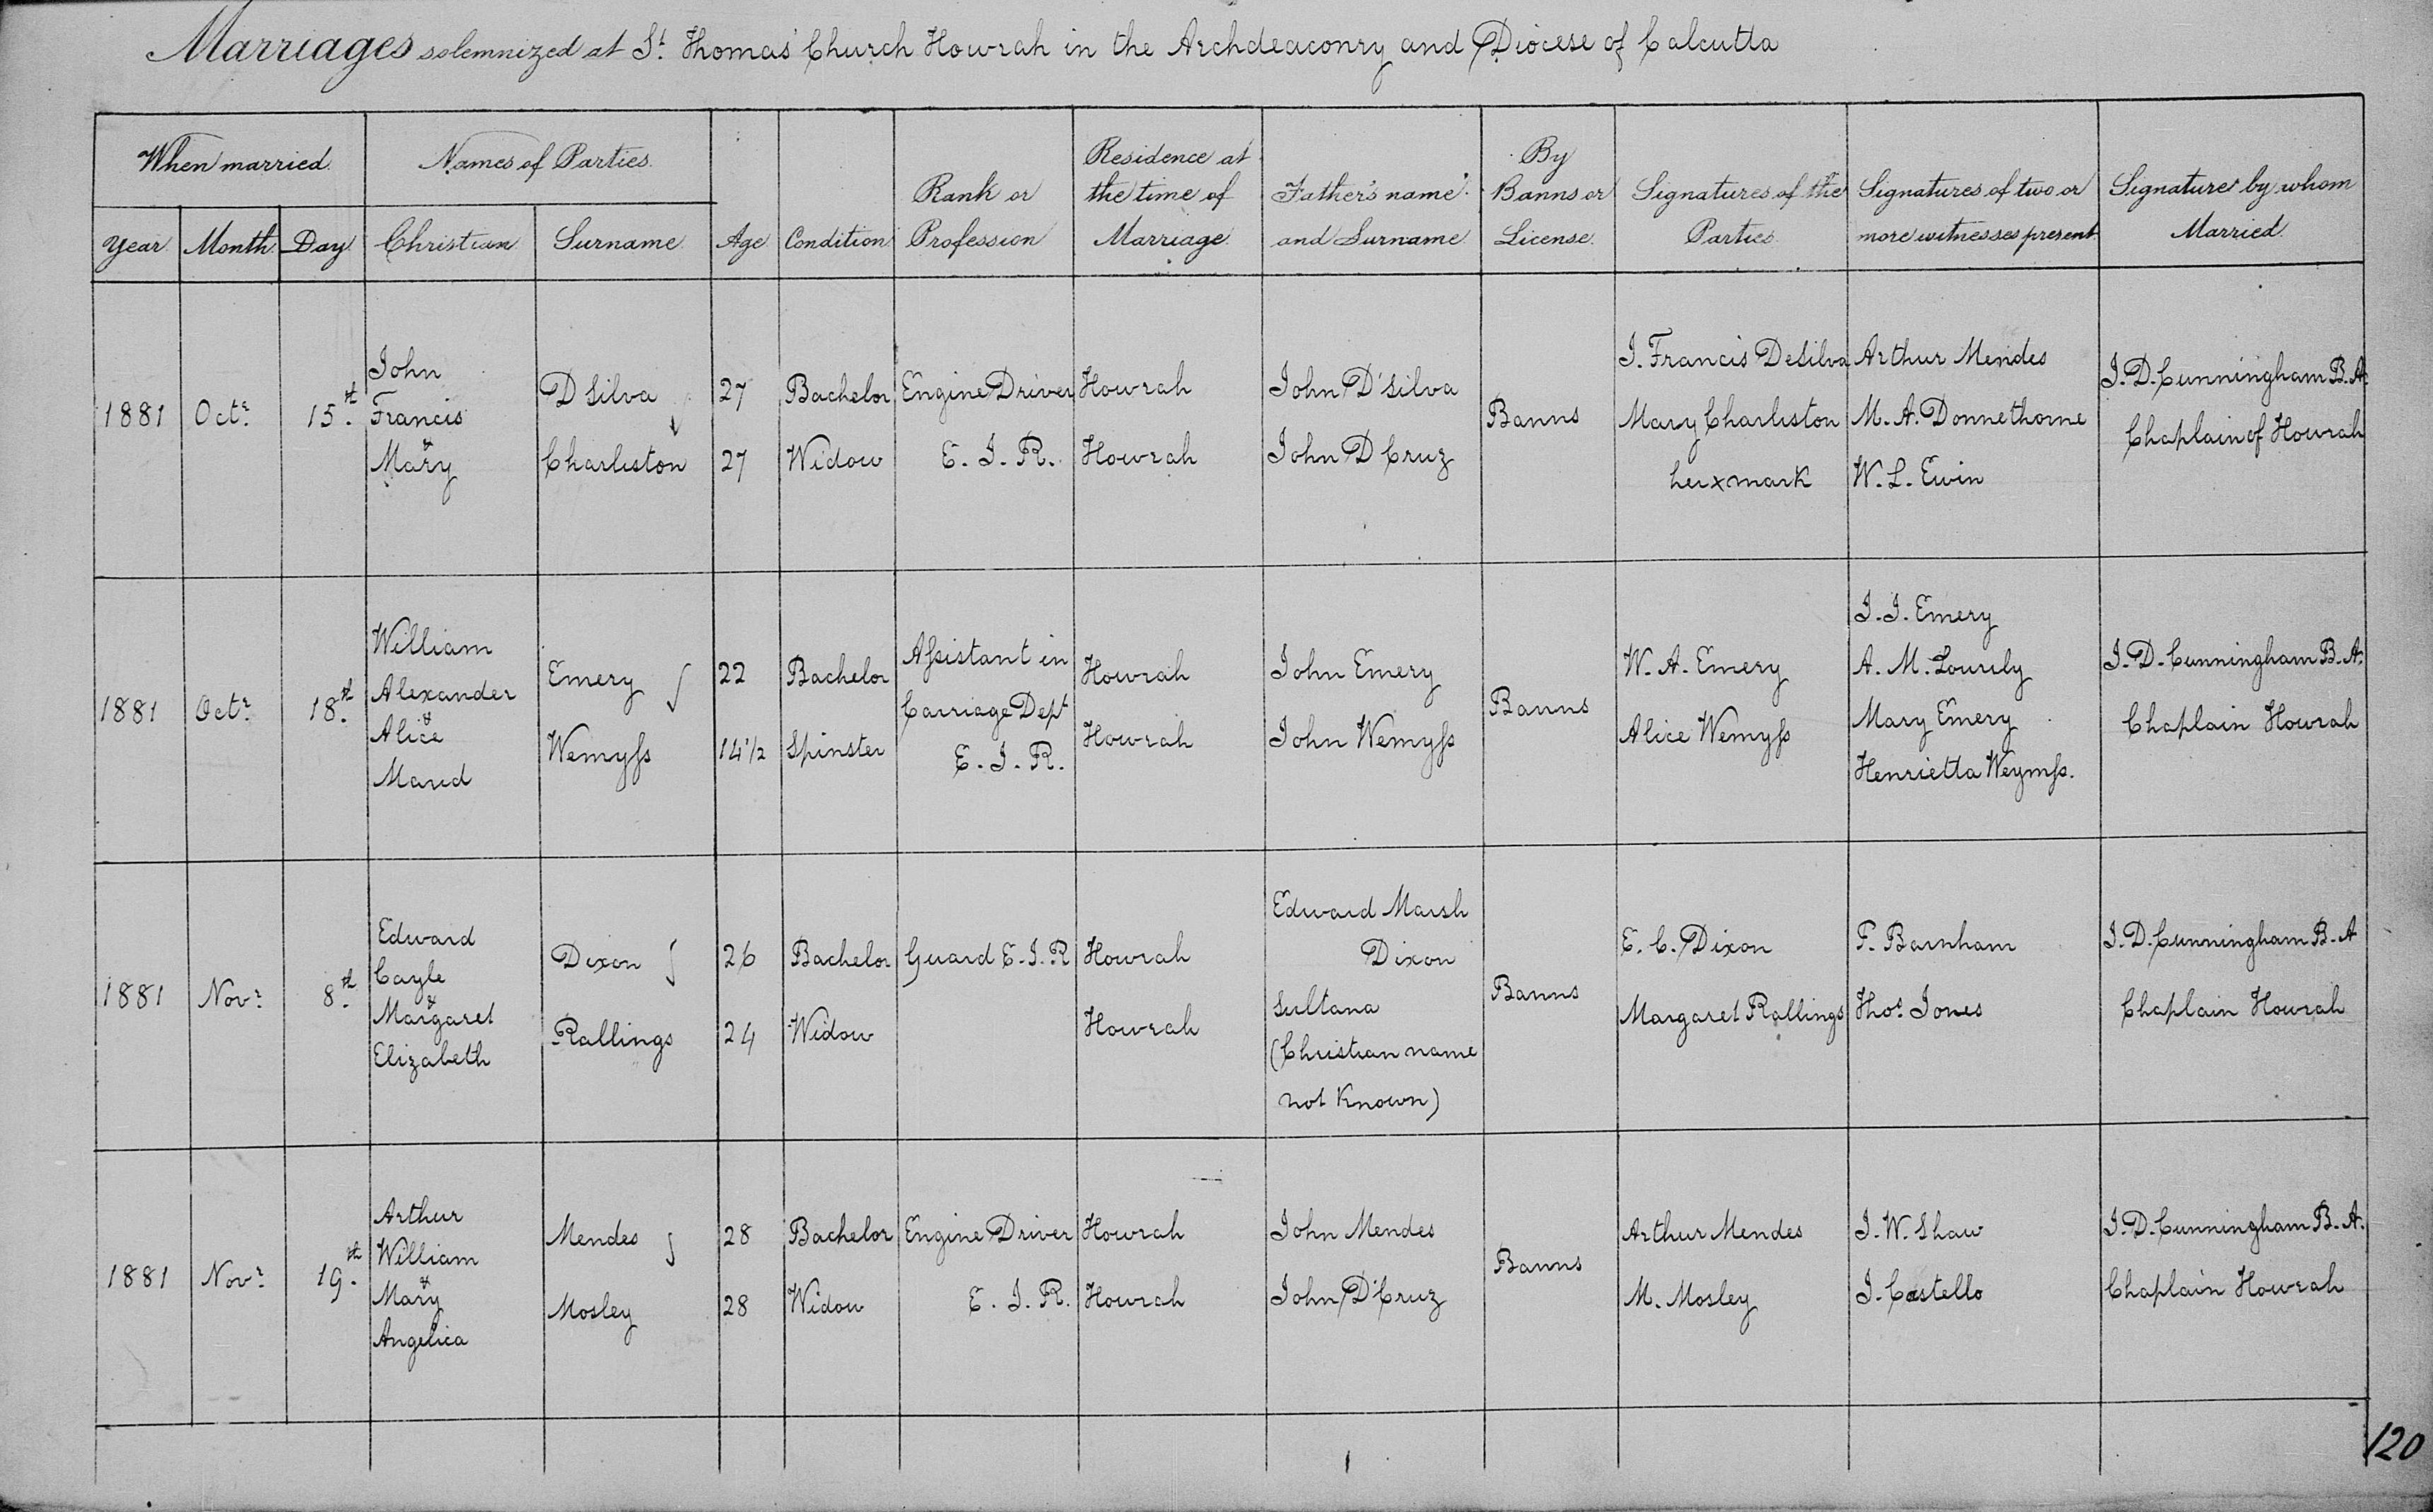 Marriages solemnized at St. Thomas' Church Howrah in the Archdeaconry and Diocese of Calcutta
When married
Names of Parties
Year
Month
Day
Christian
Surname
Age
Condition
Rank or
Profession
Residence at
the time of
Marriage
Father's name
and Surname
By
Banns or
License
Signatures of the
Parties
Signatures of two or
more witnesses present
Signature by whom
Married
1881
Octr.
15th
John
Francis
&
Mary
D Silva
Charliston
27
27
Bachelor
Widow
Engine Driver
E. I. R.
Howrah
Howrah
John D'Silva
John D Cruz
Banns
J. Francis DeSilva
Mary Charliston
her x mark
Arthur Mendes
M. A. Donnethorne
W. L. Ewin
J. D. Cunningham B. A.
Chaplain of Howrah
1881
Octr.
18th
William
Alexander
&
Alice
Maud
Emery
Wemyſs
22
14 1/2
Bachelor
Spinster
Aſsistant in
Carriage Dept
E. I. R.
Howrah
Howrah
John Emery
John Wemyſs
Banns
W. A. Emery
Alice Wemyſs
J. J. Emery
A. M.
Mary Emery
Henrietta Weymſs.
J. D. Cunningham B. A.
Chaplain Howrah
1881
Novr.
8th
Edward
Cayle
&
Margaret
Elizabeth
Dixon
Rallings
26
24
Bachelor
Widow
Guard E. I. R
Howrah
Howrah
Edward Marsh
Dixon
Sultana
(Christian name
not Known)
Banns
E. C. Dixon
Margaret Rallings
F. Barnham
Thos. Jones
J. D. Cunningham B. A
Chaplain Howrah
1881
Novr.
19th
Arthur
William
&
Mary
Angelica
Mendes
Mosley
28
28
Bachelor
Widow
Engine Driver
E. I. R.
Howrah
Howrah
John Mendes
John D'Cruz
Banns
Arthur Mendes
M. Mosley
J. W. Shaw
J. Costello
J. D. Cunningham B. A.
Chaplain Howrah
120